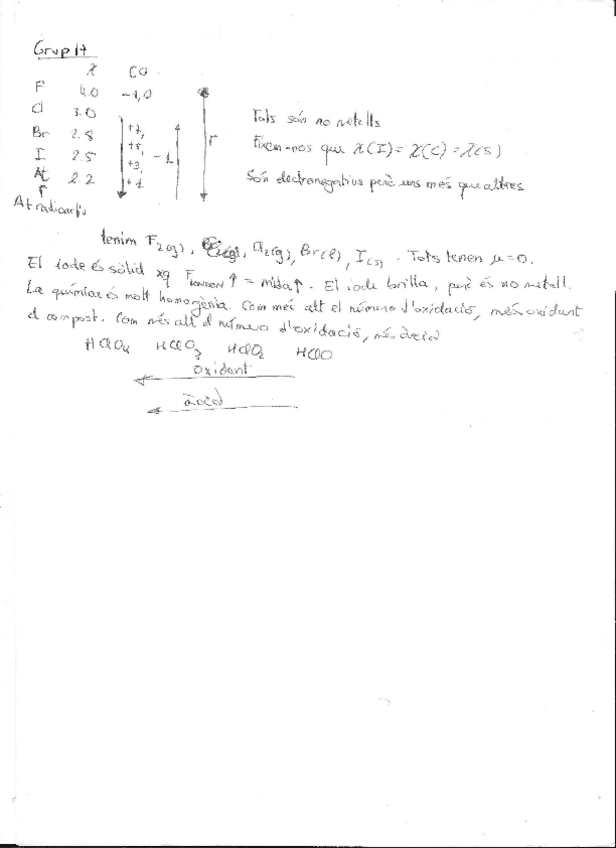 Grup 17
χ EO
F 4.0 -1,0
Cl 3.0
Br 2.8 +7,
I 2.5 +5, +3, -1
At 2.2 +1
r
At radioactiu
Tots són no metalls
Fixem-nos que χ(I) = χ(C) = χ(S)
Són electronegatius però uns més que altres
tenim F2(g), Cl2(g), Br(l), I(s). Tots tenen μ=0.
El iode és sòlid xq F LONDON ↑ = mida ↑. El iode brilla, però és no metall.
La química és molt homogènia. Com més alt el número d'oxidació, més oxidant
el compost. Com més alt el número d'oxidació, més àcid
HClO4 HClO3 HClO2 HClO
oxidant
àcid